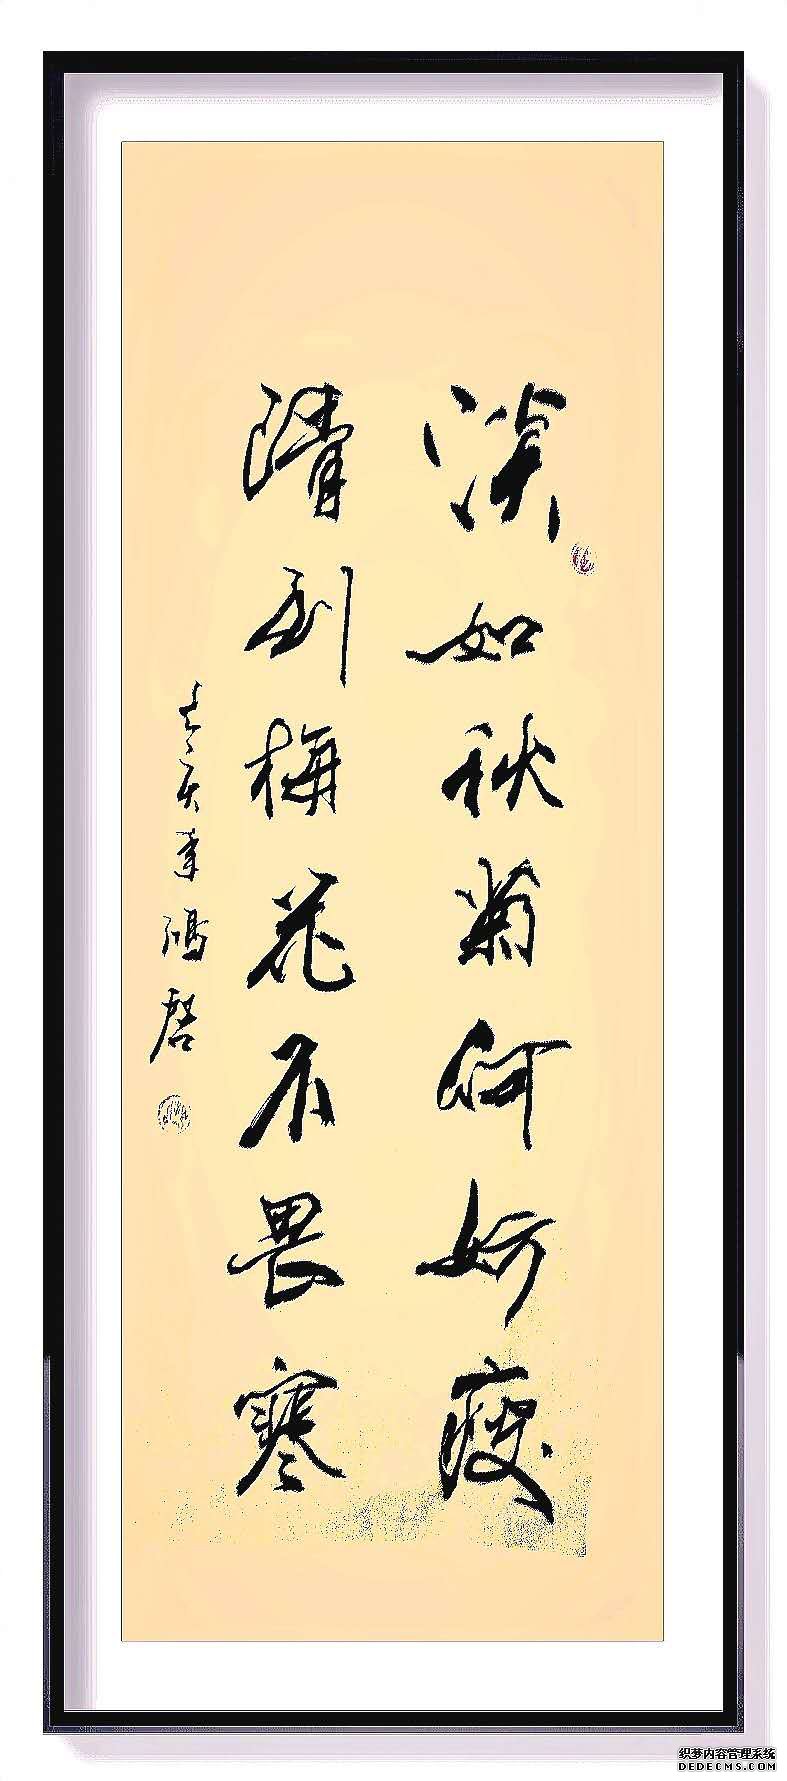 淡如秋菊何妨瘦
清到梅花不畏寒
年鸿启
织梦内容管理系统
DEDECMS.COM